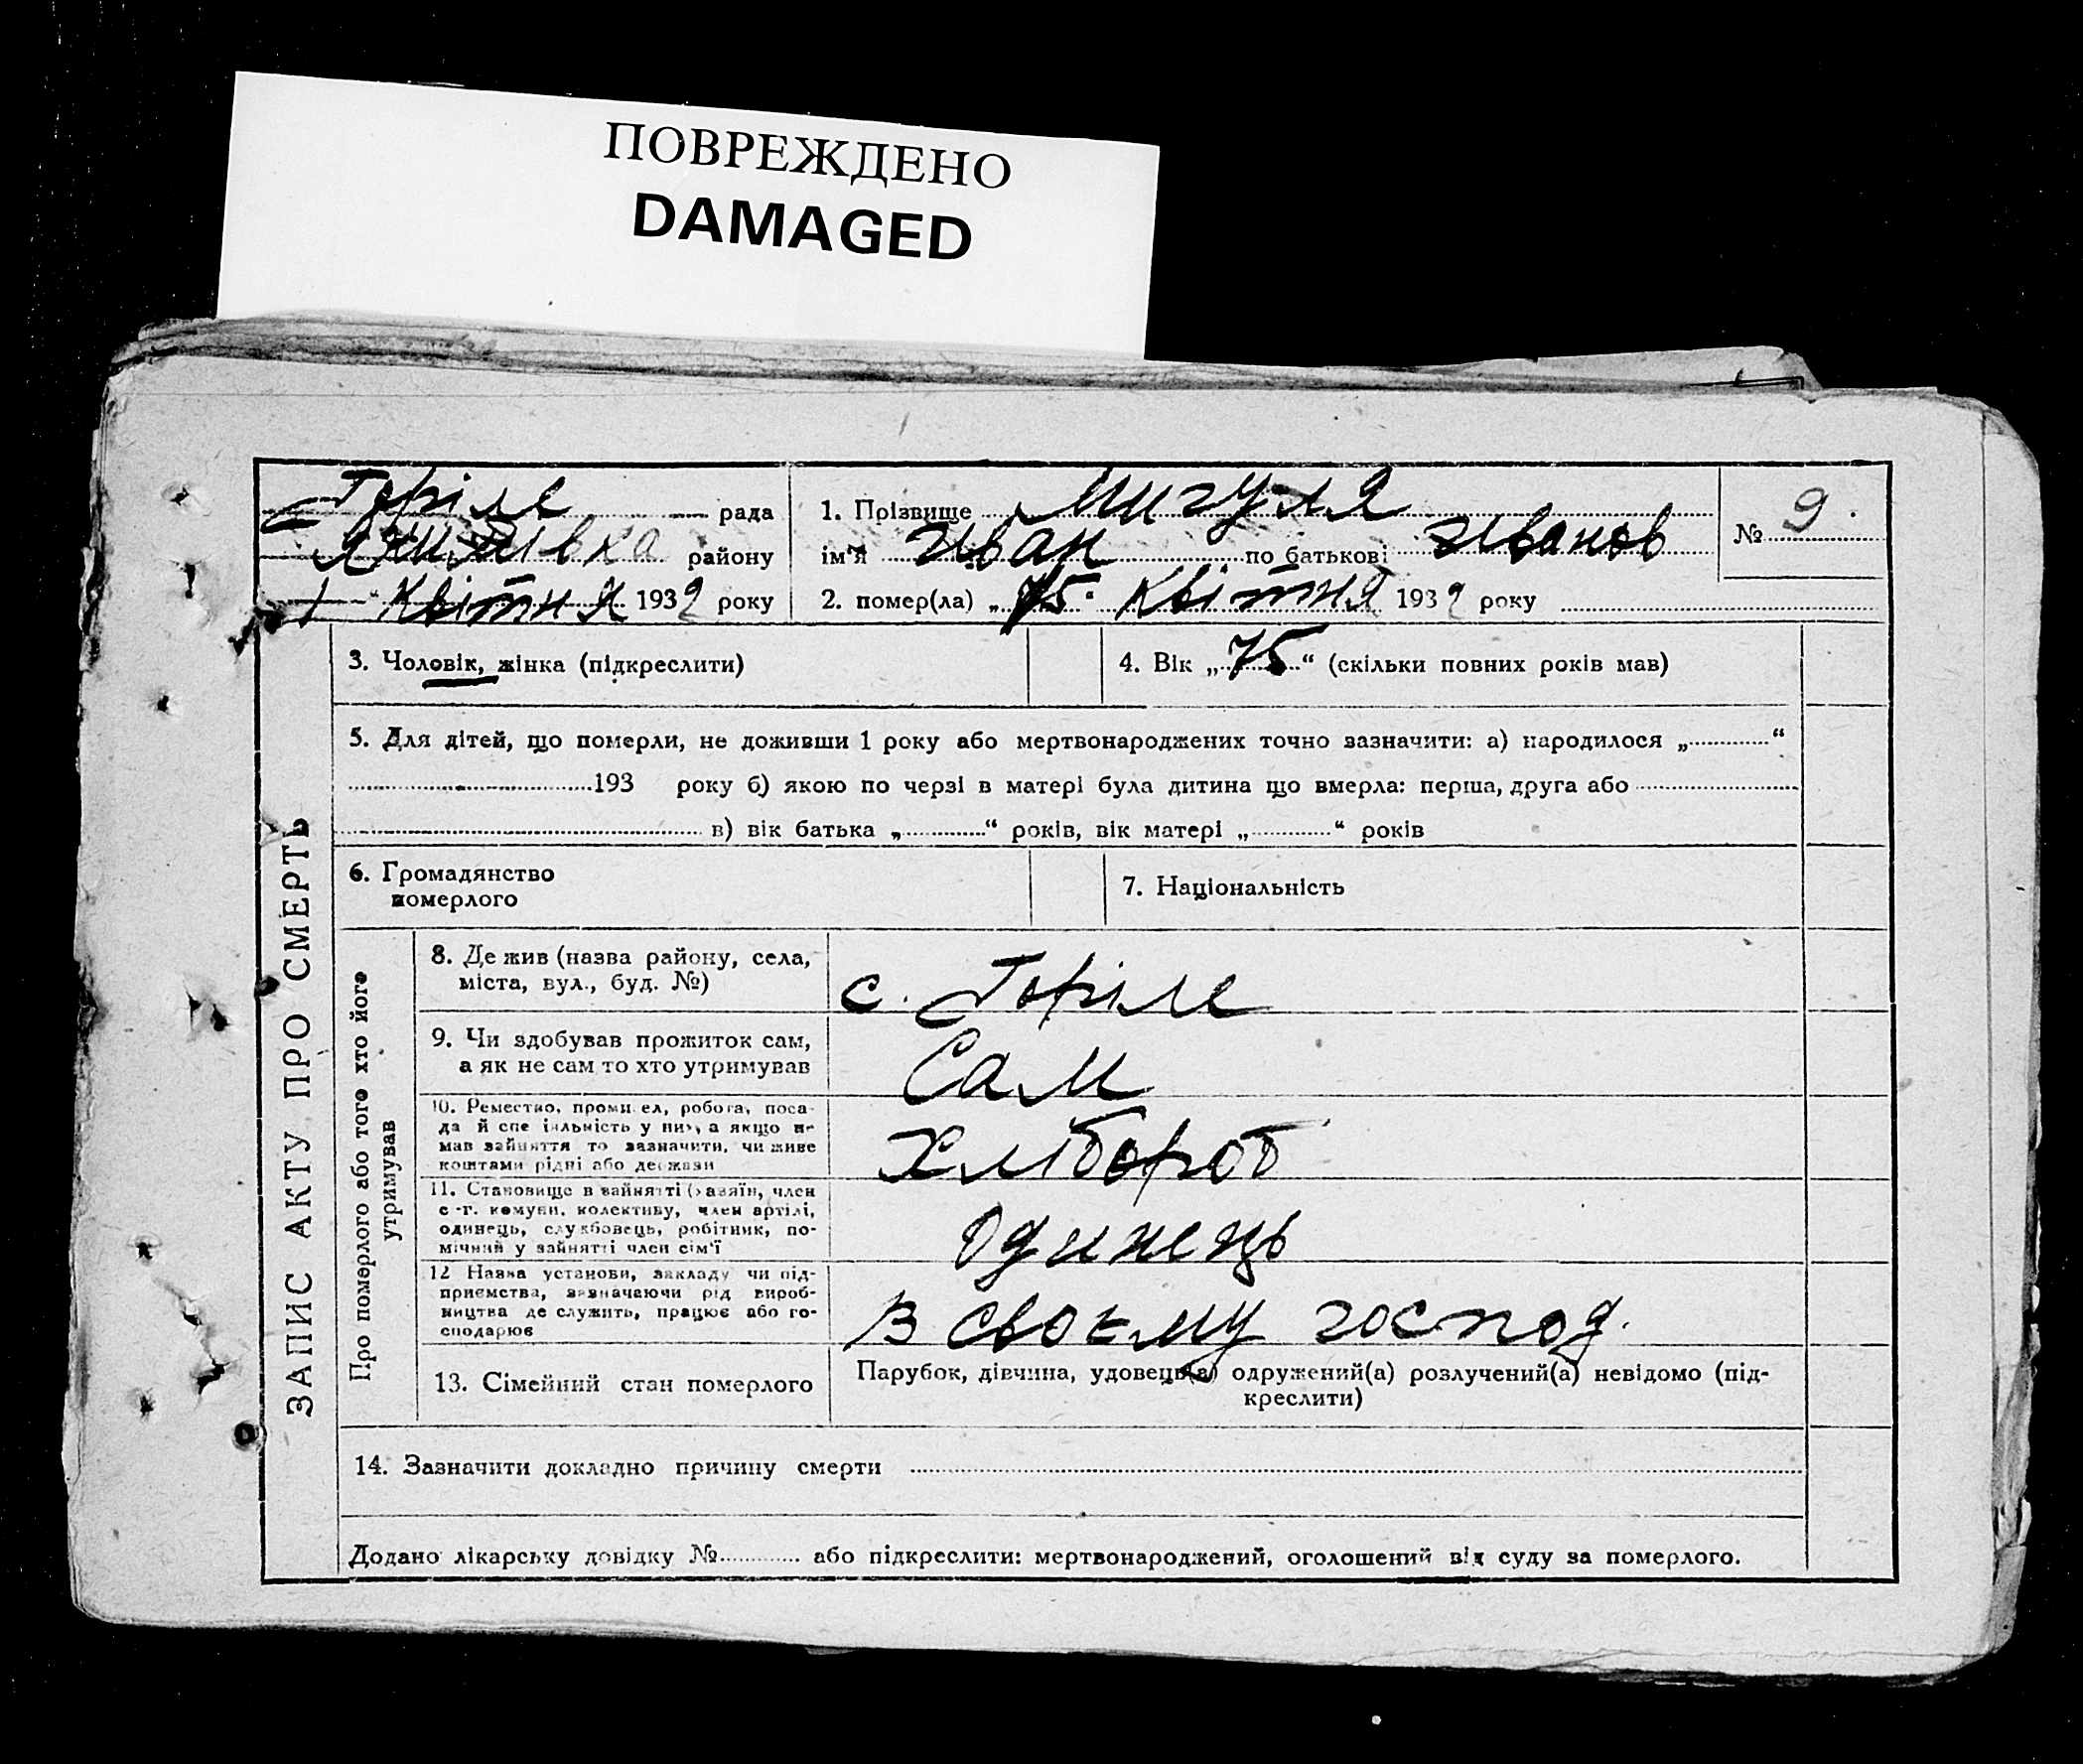 ПОВРЕЖДЕНО
DAMAGED
Горіле рада
району
1 квітня 1932 року
1. Прізвище Мигуля
ім'я Иван по батькові Иванов
2. помер(ла) „ квітня 1932 року
№ 9.
3. Чоловік, жінка (підкреслити)
4. Вік „75“ (скільки повних років мав)
5. Для дітей, що померли, не доживши 1 року або мертвонароджених точно зазначити: а) народилося „ “
193 року б) якою по черзі в матері була дитина що вмерла: перша, друга або
в) вік батька „ “ років, вік матері „ “ років
6. Громадянство
померлого
7. Національність
ЗАПИС АКТУ ПРО СМЕРТЬ
Про померлого або того хто його
утримував
8. Де жив (назва району, села,
міста, вул., буд. №)
с. Горіле
9. Чи здобував прожиток сам,
а як не сам то хто утримував
Сам
10. Ремество, промисел, робота, поса-
да й спеціяльність у них, а якщо не
мав зайняття то зазначити, чи живе
коштами рідні або держави
Хлібороб
11. Становище в зайнятті (хазяїн, член
с.-г. комуни, колективу, член артілі,
одинець, службовець, робітник, по-
мічний у зайнятті член сім'ї
Одинець
12 Назва установи, закладу чи під-
приємства, зазначаючи рід вироб-
ництва де служить, працює або го-
сподарює
В своєму господ.
13. Сімейний стан померлого
Парубок, дівчина, удовець(а) одружений(а) розлучений(а) невідомо (під-
креслити)
14. Зазначити докладно причину смерти
Додано лікарську довідку № або підкреслити: мертвонароджений, оголошений від суду за померлого.